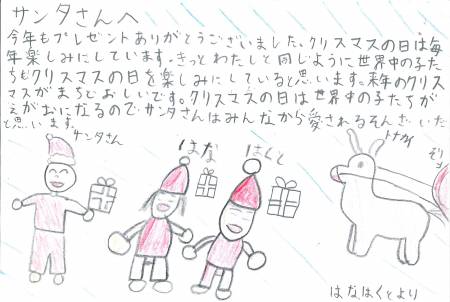 サンタさんへ
今年もプレゼントありがとうございました。クリスマスの日は毎
年楽しみにしています。きっとわたしと同じように世界中の子た
ちもクリスマスの日を楽しみにしていると思います。来年のクリス
マスがまちどおしいです。クリスマスの日は世界中の子たちがえ
がおになるので、サンタさんはみんなから愛されるそんざいだ
と思います。
サンタさん
はな
はくと
トナカイ
そり
はな、はくとより